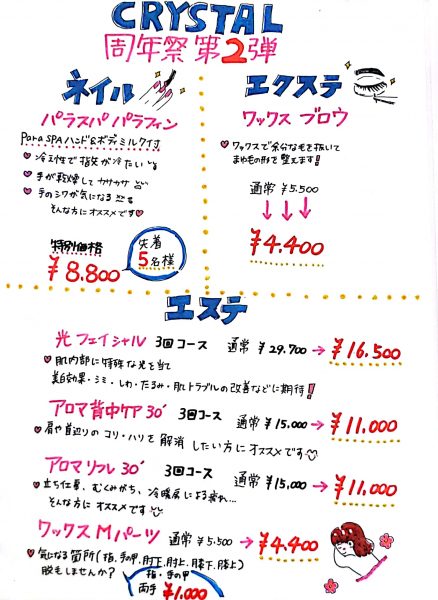 CRYSTAL
周年祭 第2弾
ネイル
パラスパ パラフィン
Para SPA ハンド&ボディミルク付
♥冷え性で指先が冷たい
♥手が乾燥して カサカサ
♥手のシワが気になる
そんな方にオススメです♡
特別価格
¥8.800
先着
5名様
エクステ
ワックス ブロウ
♥ワックスで余分な毛を抜いて
まゆ毛の形を整えます!
通常 ¥5.500
↓↓↓
¥4.400
エステ
光フェイシャル 3回コース 通常 ¥29.700 → ¥16.500
♥肌内部に特殊な光を当て
美白効果・シミ・しわ・たるみ・肌トラブルの改善などに期待!
アロマ背中ケア30′ 3回コース 通常 ¥15.000 → ¥11.000
♥肩や首辺りの コリ・ハリを 解消 したい方に オススメです
アロマリフレ30′ 3回コース 通常 ¥15,000 → ¥11.000
♥立ち仕事、むくみがち、冷暖房による疲れ...
そんな方に オススメです
ワックス Mパーツ 通常 ¥5.500 → ¥4.400
♥気になる箇所(指、手の甲、肘下、肘上、膝下、膝上)
脱毛しませんか?
指・手の甲
両手 ¥1.000